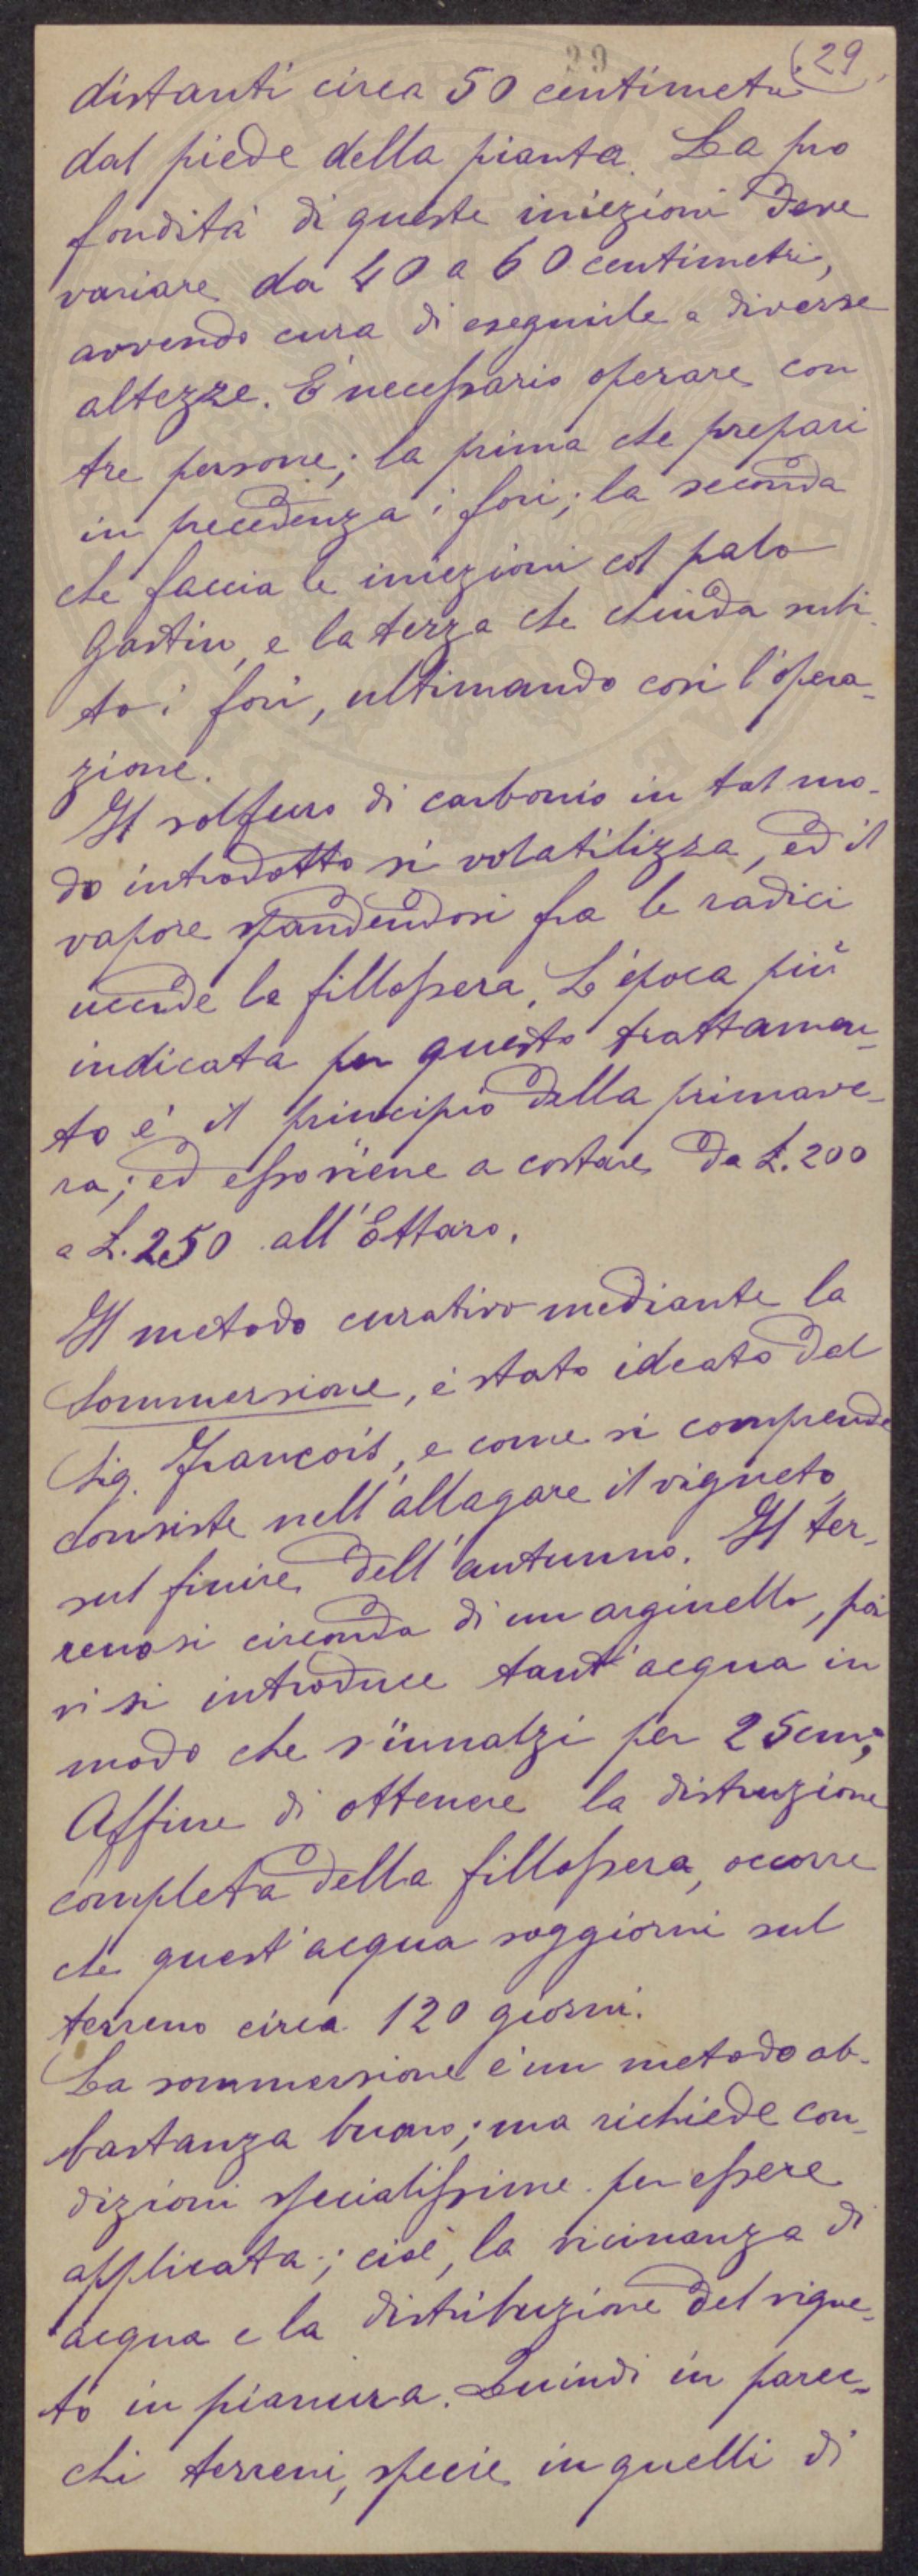 29 (29
distanti circa 50 centimetri
dal piede della pianta. La pro
fondità di queste iniezioni deve
variare da 40 a 60 centimetri,
avvendo cura di eseguirle a diverse
altezze. È necessario operare con
tre persone; la prima che prepari
in precedenza i fori; la seconda
che faccia le iniezioni col palo
Gastin, e la terza che chiuda subi-
to i fori, ultimando così l'opera-
zione.
Il solfuro di carbonio in tal mo-
do introdotto si volatilizza, ed il
vapore spandendosi fra le radici
uccide la fillossera. L'época più
indicata per questo trattamen-
to é il principio della primave-
ra; ed esso viene a costare da L. 200
a L. 250 all'Ettaro.
Il metodo curativo mediante la
Sommersione, é stato ideato dal
Sig. François, e come si comprende
consiste nell'allagare il vigneto
sul finire dell'autunno. Il ter-
reno si circonda di un arginello, poi
vi si introduce tant'acqua in
modo che s'innalzi per 25 cm;
Affine di ottenere la distruzione
completa della fillossera, occorre
che quest'acqua soggiorni sul
terreno circa 120 giorni.
La sommersione é un metodo ab-
bastanza buono; ma richiede con-
dizioni specialissime per essere
applicata; cioé, la vicinanza di
acqua e la distribuzione del vigne-
to in pianura. Quindi in parec-
chi terreni, specie in quelli di